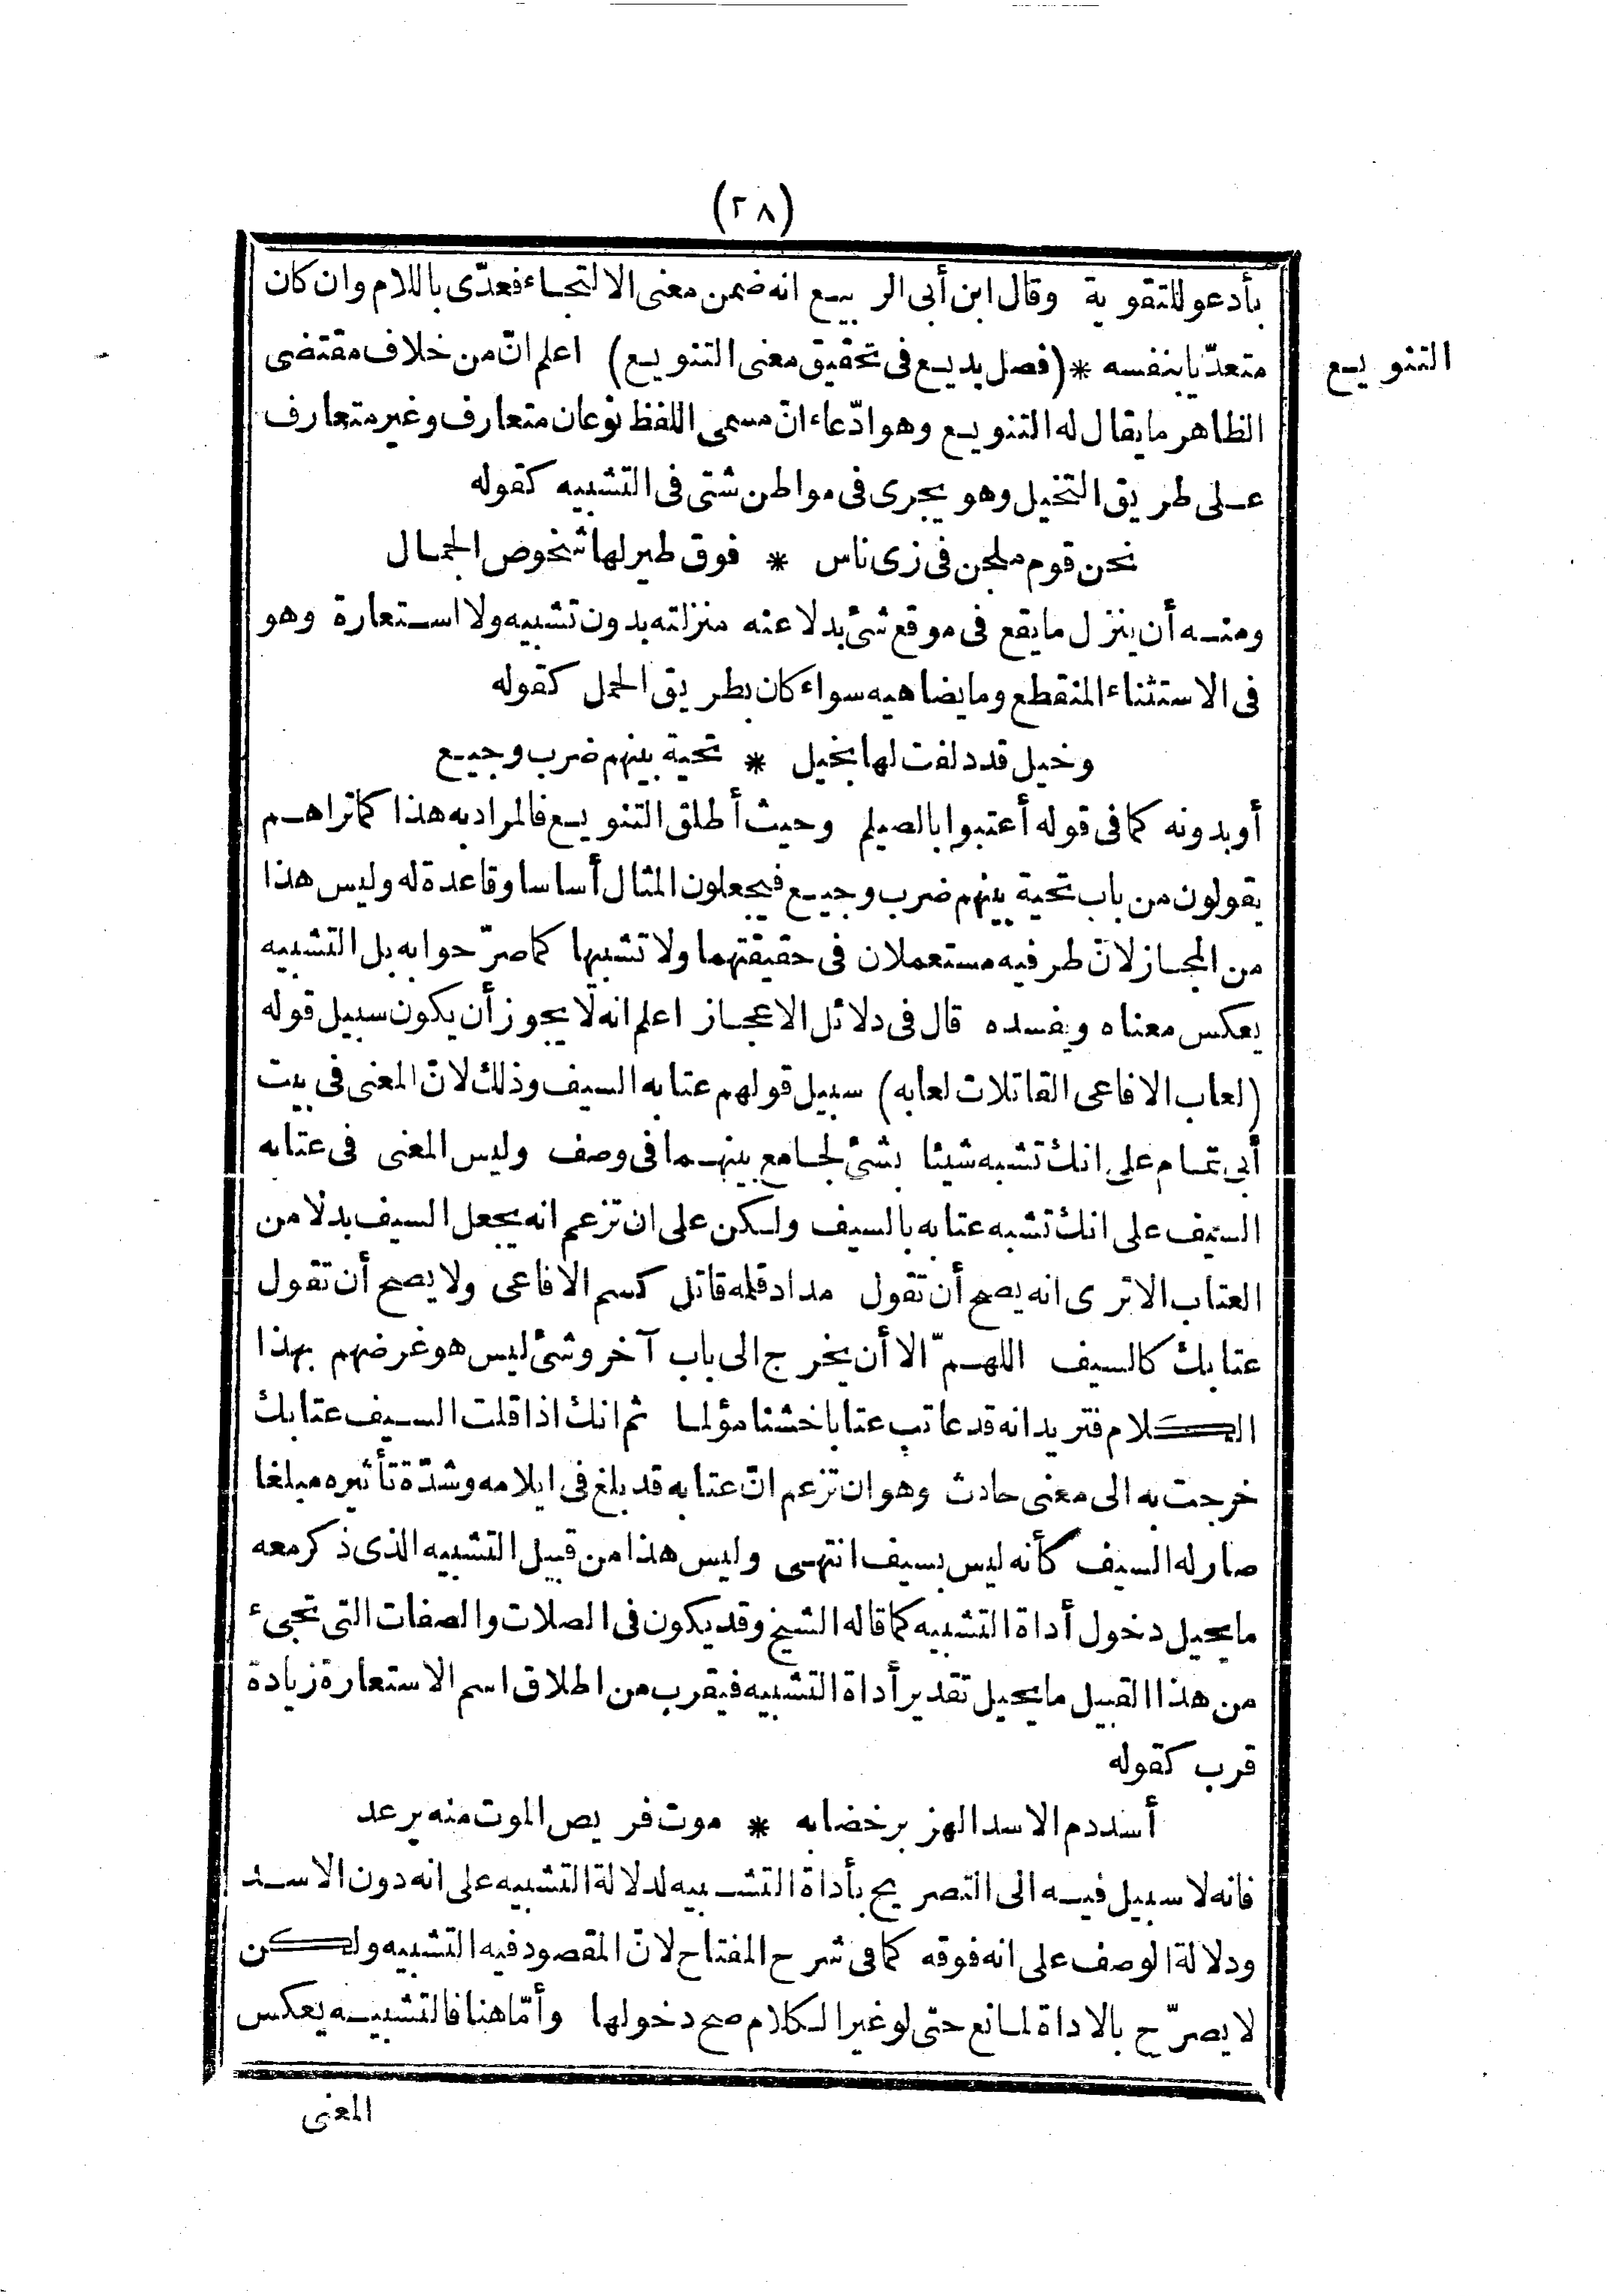 (٢٨)
بأدعو للتقوية وقال ابن أبى الربيع انه ضمن معنى الالتجاء فعدّى باللام وان كان
التنويع
متعدّيا بنفسه * (فصل بديع فى تحقيق معنى التنويع) اعلم انّ من خلاف مقتضى
الظاهر ما يقال له التنويع وهو ادّعاء انّ مسمى اللفظ نوعان متعارف وغير متعارف
على طريق التخيل وهو يجرى فى مواطن شتى فى التشبيه كقوله
نحن قوم ملجن فى زى ناس * فوق طير لها شخوص الجمال
ومنه أن ينزل ما يقع فى موقع شئ بدلا عنه منزلته بدون تشبيه ولا استعارة وهو
فى الاستثناء المنقطع وما يضاهيه سواء كان بطريق الحمل كقوله
وخيل قد دلفت لها بخيل * تحية بينهم ضرب وجيع
أو بدونه كما فى قوله أعتبوا بالصيلم وحيث أطلق التنويع فالمراد به هذا كما تراهم
يقولون من باب تحية بينهم ضرب وجيع فيجعلون المثال أساسا وقاعدة له وليس هذا
من المجاز لانّ طرفيه مستعملان فى حقيقتهما ولا تشبيها كما صرّحوا به بل التشبيه
يعكس معناه ويفسده قال فى دلائل الاعجاز اعلم انه لا يجوز أن يكون سبيل قوله
(لعاب الافاعى القاتلات لعابه) سبيل قولهم عتابه السيف وذلك لانّ المعنى فى بيت
أبى تمام على انك تشبه شيئا بشئ لجامع بينهما فى وصف وليس المعنى فى عتابه
السيف على انك تشبه عتابه بالسيف ولكن على ان تزعم انه يجعل السيف بدلا من
العتاب الا ترى انه يصح أن تقول مداد قلمه قاتل كسم الافاعى ولا يصح أن تقول
عتابك كالسيف اللهمّ الا أن يخرج الى باب آخر وشئ ليس هو غرضهم بهذا
الكلام فتريد انه قد عاتب عتابا خشنا مؤلما ثم انك اذا قلت السيف عتابك
خرجت به الى معنى حادث وهو ان تزعم انّ عتابه قد بلغ فى ايلامه وشدّة تأثيره مبلغا
صار له السيف كأنه ليس بسيف انتهى وليس هذا من قبيل التشبيه الذى ذكر معه
ما يحيل دخول أداة التشبيه كما قاله الشيخ وقد يكون فى الصلات والصفات التى تجىء
من هذا القبيل ما يحيل تقدير أداة التشبيه فيقرب من اطلاق اسم الاستعارة زيادة
قرب كقوله
أسد دم الاسد الهزبر خضابه * موت فريص الموت منه يرعد
فانه لا سبيل فيه الى التصريح بأداة التشبيه لدلالة التشبيه على انه دون الاسد
ودلالة الوصف على انه فوقه كما فى شرح المفتاح لانّ المقصود فيه التشبيه ولكن
لا يصرّح بالاداة لمانع حتى لو غير الكلام صح دخولها وأمّا هنا فالتشبيه يعكس
المعنى